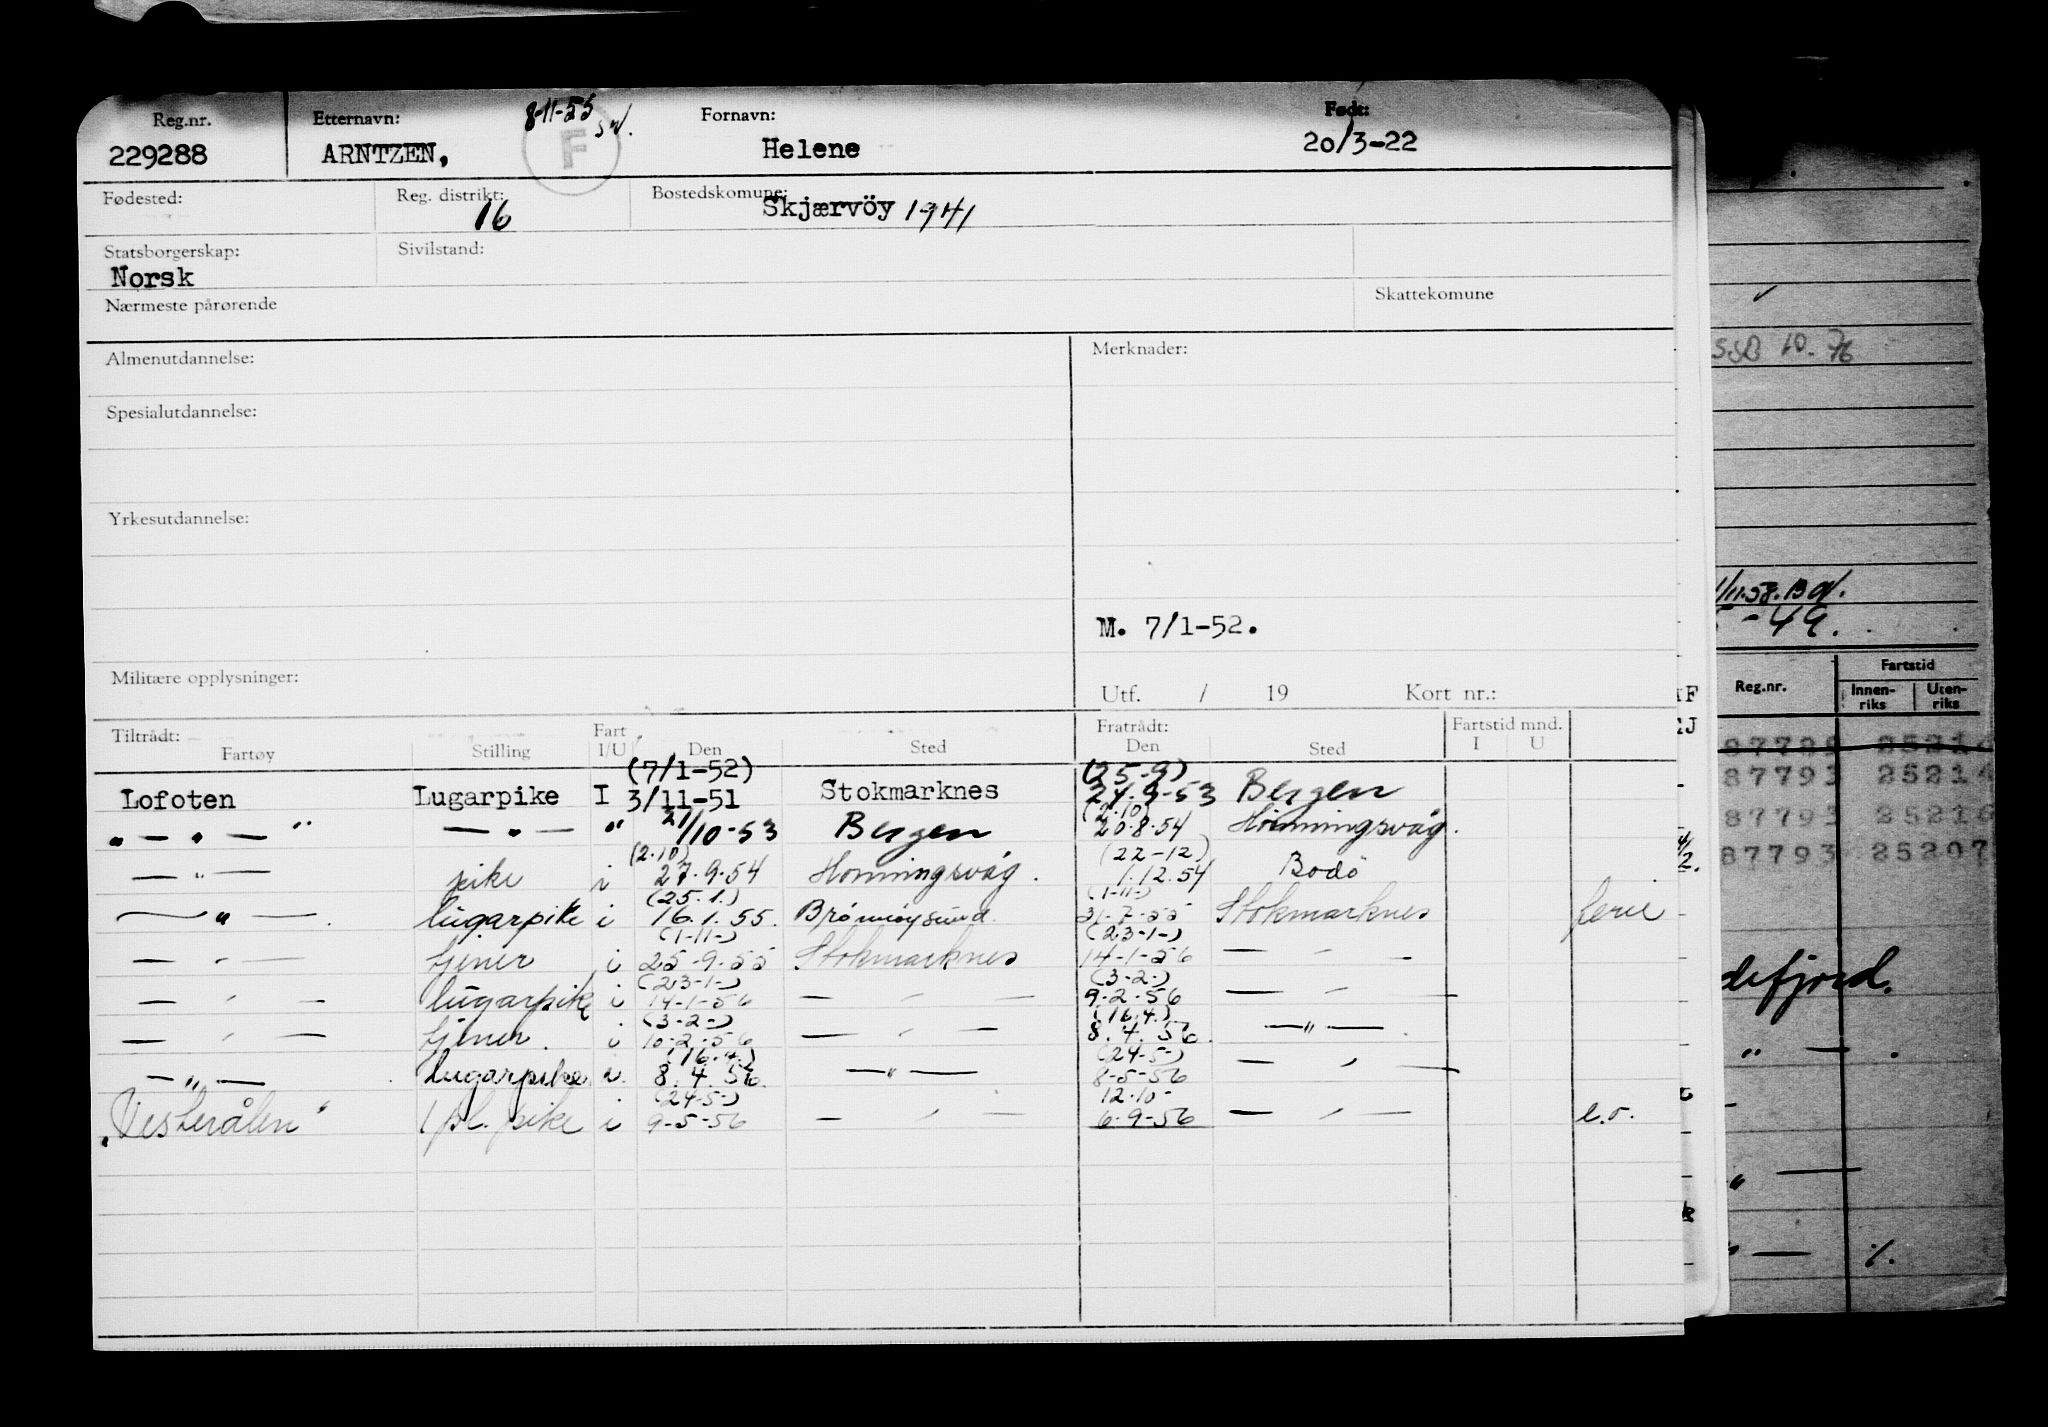 Reg.nr. Etternavn: 8-11-55 Fornavn: Født:
229288 ARNTZEN, F Helene 20/3-22
Fødested: Reg. distrikt: 16 Bostedskomune: Skjærvöy 1941
Statsborgerskap: Sivilstand:
Norsk
Nærmeste pårørende Skattekomune
Almenutdannelse: Merknader:
Spesialutdannelse:
Yrkesutdannelse:
M. 7/1-52.
Militære opplysninger: Utf. / 19 Kort nr.:
Tiltrådt: Fart Fratrådt: Fartstid mnd.
Fartøy Stilling I/U Den Sted Den Sted I U
(7/1-52) (25-9)
Lofoten Lugarpike I 3/11-51 Stokmarknes 24.9-53 Bergen
(2.10)
" — " — " — " — " 21/10-53 Bergen 20.8.54 Honningsvåg.
(2.10) (22-12)
— " — pike i 27.9.54 Honningsvåg. 1.12.54 Bodö
(25.1.) (1-11-)
— " — lugarpike i 16.1.55. Brønnøysund. 31-7-55 Stokmarknes ferie
(1-11-) (23-1-)
— " — tjener i 25-9-55 Stokmarknes 14-1-56 — " —
(23-1-) (3-2-)
— " — lugarpike i 14-1-56 — " — 9-2-56 — " —
(3-2-) (16.4.)
— " — tjener. i 10-2-56 — " — 8.4.56. — " —
(16.4.) (24-5-)
— " — lugarpike i. 8.4.56. — " — 8-5-56 — " —
(24-5-) 12-10-
"Vesterålen" 1 pl. pike i 9-5-56 — " — 6-9-56 — " — e.o.
SSB 10.76
/11.58.
-49.
Reg.nr. Fartstid
Innen-riks Uten-riks
87793 25214
87793 25216
87793 25207
defjord.
" — .
" —
" — %.